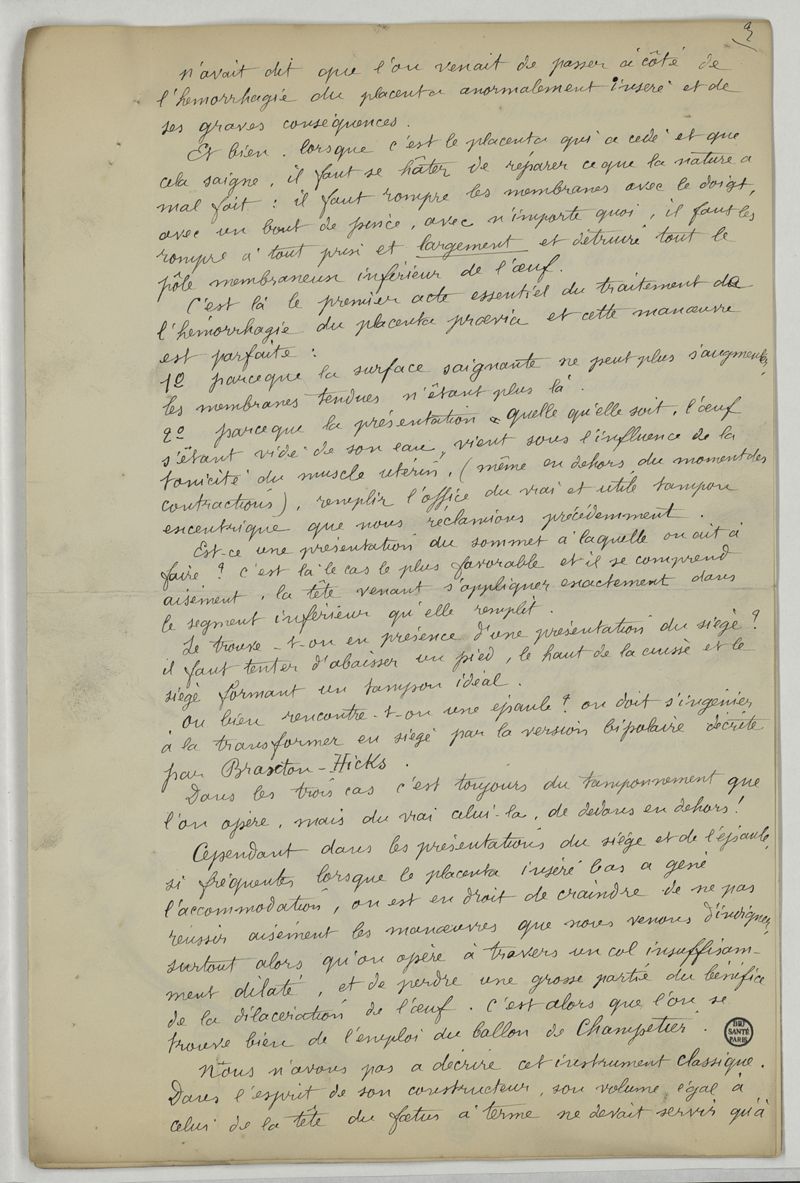 3
n'avait dit que l'on venait de passer à côté de
l'hémorrhagie du placenta anormalement inséré et de
ses graves conséquences.
Et bien, lorsque c'est le placenta qui a cédé et que
cela saigne, il faut se hâter de réparer ce que la nature a
mal fait : il faut rompre les membranes avec le doigt,
avec un bout de pince, avec n'importe quoi, il faut les
rompre à tout prix et largement et détruire tout le
pôle membraneux inférieur de l'œuf.
C'est là le premier acte essentiel du traitement de
l'hémorrhagie du placenta prævia et cette manœuvre
est parfaite :
1º parceque la surface saignante ne peut plus s'augmenter,
les membranes tendues n'étant plus là.
2º parceque la présentation quelle qu'elle soit, l'œuf
s'étant vidé de son eau, vient sous l'influence de la
tonicité du muscle utérin, (même en dehors du moment des
contractions), remplir l'office du vrai et utile tampon
excentrique que nous réclamions précédemment.
Est-ce une présentation du sommet à laquelle on ait à
faire ? c'est là le cas le plus favorable et il se comprend
aisément, la tête venant s'appliquer exactement dans
le segment inférieur qu'elle remplit.
Se trouve-t-on en présence d'une présentation du siège ?
il faut tenter d'abaisser un pied, le haut de la cuisse et le
siège formant un tampon idéal.
Ou bien rencontre-t-on une épaule ? on doit s'ingénier
à la transformer en siège par la version bipolaire décrite
par Braxton-Hicks.
Dans les trois cas c'est toujours du tamponnement que
l'on opère, mais du vrai celui-là, de dedans en dehors !
Cependant dans les présentations du siège et de l'épaule,
si fréquentes lorsque le placenta inséré bas a gêné
l'accommodation, on est en droit de craindre de ne pas
réussir aisément les manœuvres que nous venons d'indiquer,
surtout alors qu'on opère à travers un col insuffisam-
ment dilaté, et de perdre une grosse partie du bénéfice
de la dilacération de l'œuf. C'est alors que l'on se
trouve bien de l'emploi du ballon de Champetier.
BIU
SANTÉ
PARIS
Nous n'avons pas a décrire cet instrument classique.
Dans l'esprit de son constructeur, son volume égal à
celui de la tête du fœtus à terme ne devait servir qu'à